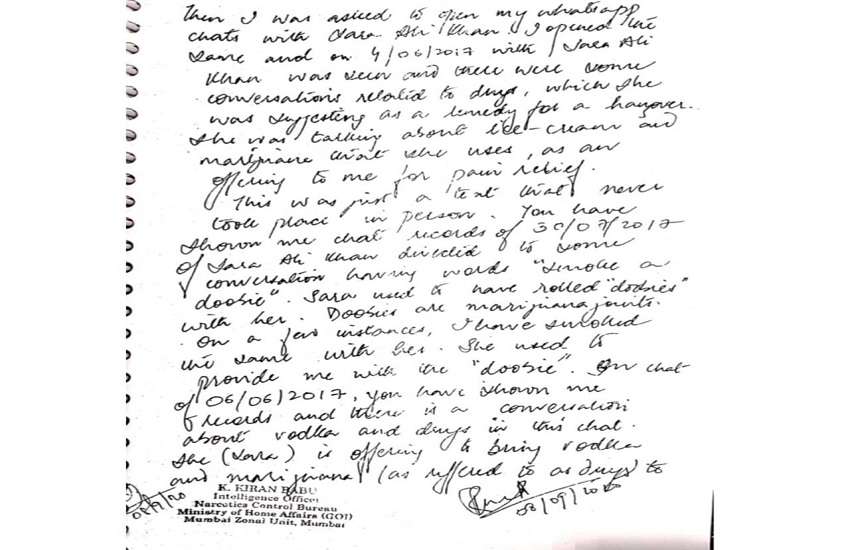 Then I was asked to open my whatsapp
chats with Sara Ali Khan. I opened the
same and on 4/06/2017 with Sara Ali
Khan was seen and there were some
conversations related to drugs, which she
was suggesting as a remedy for a hangover.
She was talking about ice-cream and
marijuana that she uses, as an
offering to me for pain relief.
This was just a text that never
took place in person. You have
shown me chat records of 30/07/2017
of Sara Ali Khan directed to some
conversation having words "smoke a
doobie". Sara used to have rolled "doobies"
with her. Doobies are marijuana joints.
On a few instances, I have smoked
the same with her. She used to
provide me with the "doobie". In chat
of 06/06/2017, you have shown me
records and there is a conversation
about vodka and drugs in this chat.
She (Sara) is offering to bring vodka
and marijuana (as reffered to as drugs) to
K. KIRAN BABU
Intelligence Officer
Narcotics Control Bureau
Ministry of Home Affairs (GOI)
Mumbai Zonal Unit, Mumbai